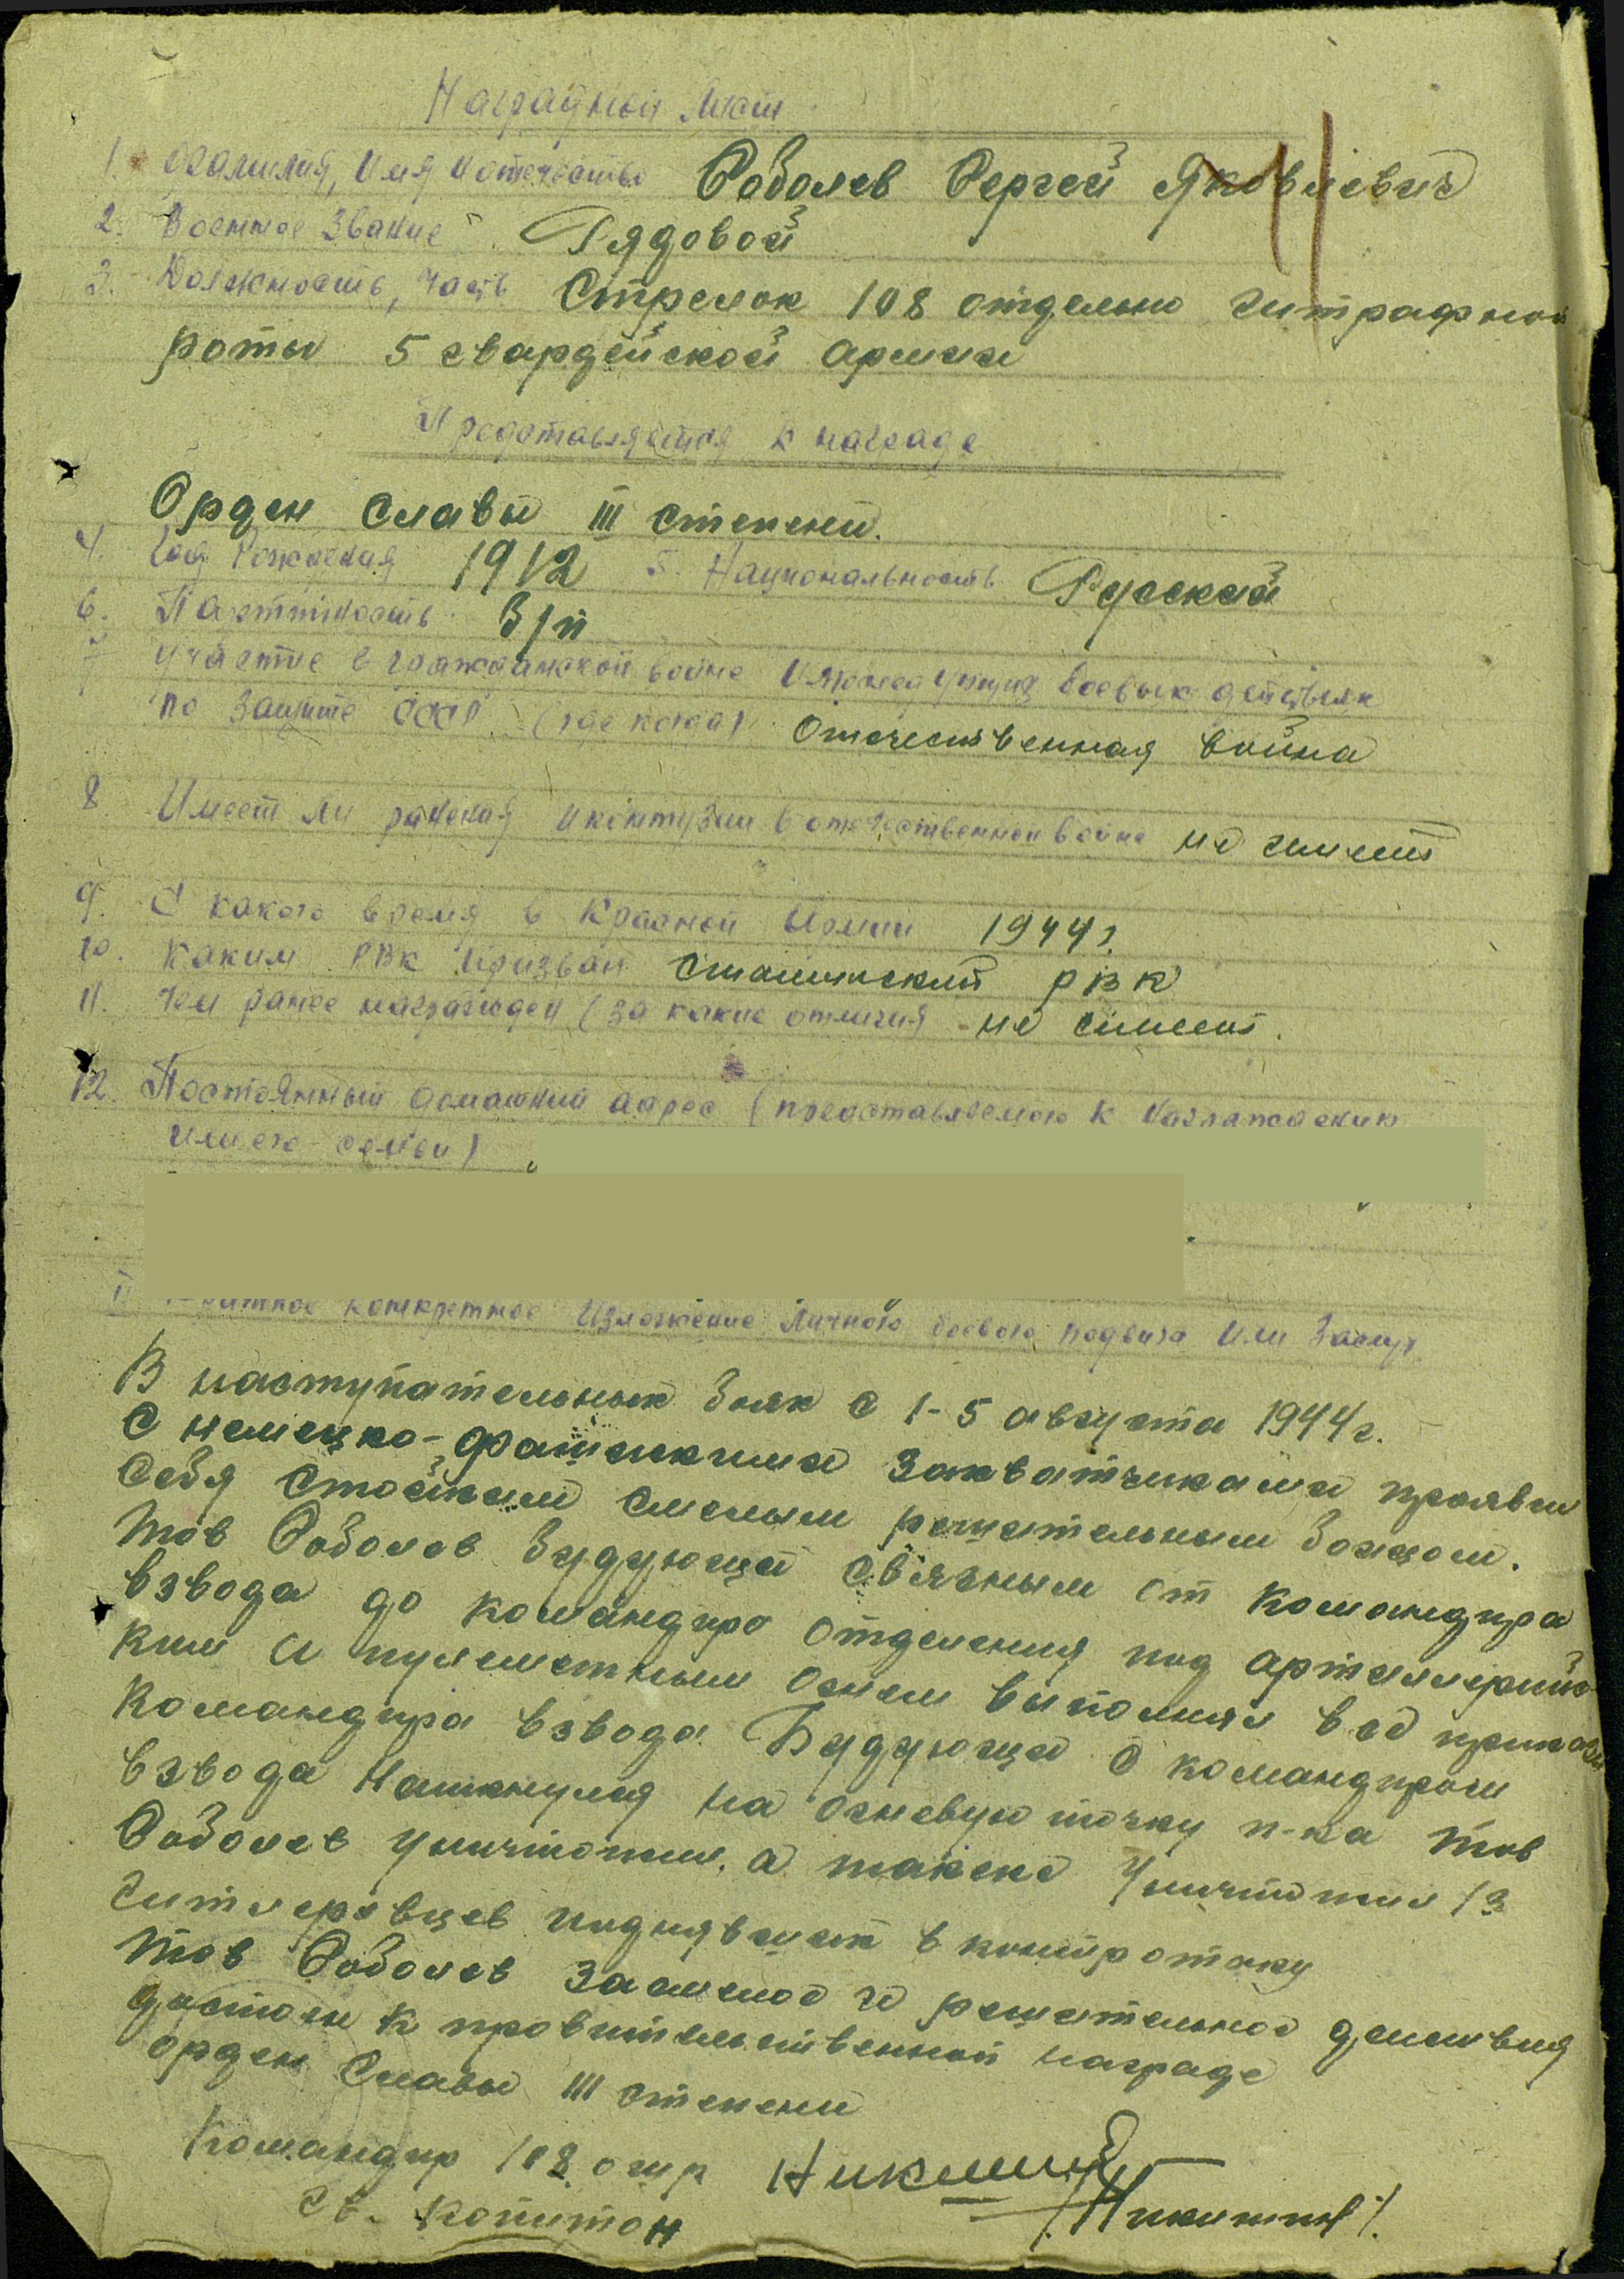 Наградной Лист
1. Фамилия, Имя и отчество Соболев Сергей Яковлевич
2. Военное звание Рядовой
3. Должность, часть Стрелок 108 отдельно штрафной
роты 5 гвардейской армии
Представляется к награде
Орден Славы III степени.
4. Год Рождения 1912 5. Национальность Русский
6. Партийность В/п
7 Участие в гражданской войне и последующих боевых действиях
по защите СССР (где когда) Отечественная война
8 Имеет ли ранения и контузии в отечественной войне не имеет
9. С какого время в Красной Армии 1944 г.
10. Каким РВК призван Сталинский РВК
11. Чем ранее награжден (за какие отличия не имеет.
12. Постоянный домашний адрес (представляемого к награждению
или его семьи)
конкретное изложение личного боевого подвига или заслуг
В наступательных боях с 1-5 августа 1944 г.
С немецко-фашискими захватчиками проявил
себя стойким смелым решительным бойцом.
Тов Соболев будующи связным от командира
взвода до командира отделения под артиллерийс-
ким и пулеметным огнем выполнял все приказы
командира взвода. Будующи с командиром
взвода наткнулся на огневую точку п-ка тов
Соболев уничтожил, а также уничтожил 13
гитлеровцев поднявшихся в контратаку
Тов Соболев за смелое и решительное действия
достоин к правительственной награде
орден Славы III степени
Командир 108 ошр
Гв. капитан /Никитин/.